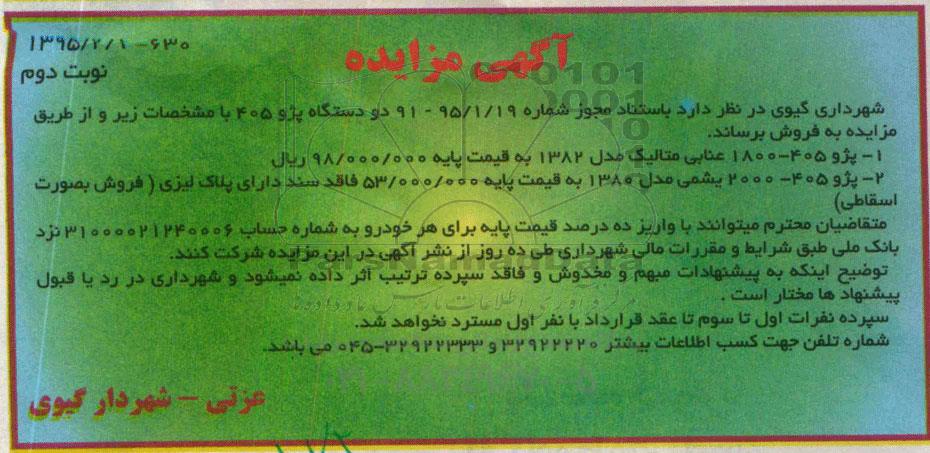 آگهی مزایده
۶۳۰- ۱۳۹۵/۲/۱
نوبت دوم
شهرداری گیوی در نظر دارد باستناد مجوز شماره ۹۵/۱/۱۹ - ۹۱ دو دستگاه پژو ۴۰۵ با مشخصات زیر و از طریق
مزایده به فروش برساند.
۱- پژو ۴۰۵- ۱۸۰۰ عنابی متالیک مدل ۱۳۸۲ به قیمت پایه ۹۸/۰۰۰/۰۰۰ ریال
۲- پژو ۴۰۵- ۲۰۰۰ یشمی مدل ۱۳۸۰ به قیمت پایه ۵۳/۰۰۰/۰۰۰ فاقد سند دارای پلاک لیزی ( فروش بصورت
اسقاطی)
متقاضیان محترم میتوانند با واریز ده درصد قیمت پایه برای هر خودرو به شماره حساب ۳۱۰۰۰۰۲۱۲۴۰۰۰۶ نزد
بانک ملی طبق شرایط و مقررات مالی شهرداری طی ده روز از نشر آگهی در این مزایده شرکت کنند.
توضیح اینکه به پیشنهادات مبهم و مخدوش و فاقد سپرده ترتیب آثر داده نمیشود و شهرداری در رد یا قبول
پیشنهاد ها مختار است .
سپرده نفرات اول تا سوم تا عقد قرارداد با نفر اول مسترد نخواهد شد.
شماره تلفن جهت کسب اطلاعات بیشتر ۳۲۹۲۲۲۲۰ و ۳۲۹۲۲۳۳۳-۰۴۵ می باشد.
عزتی - شهردار گیوی